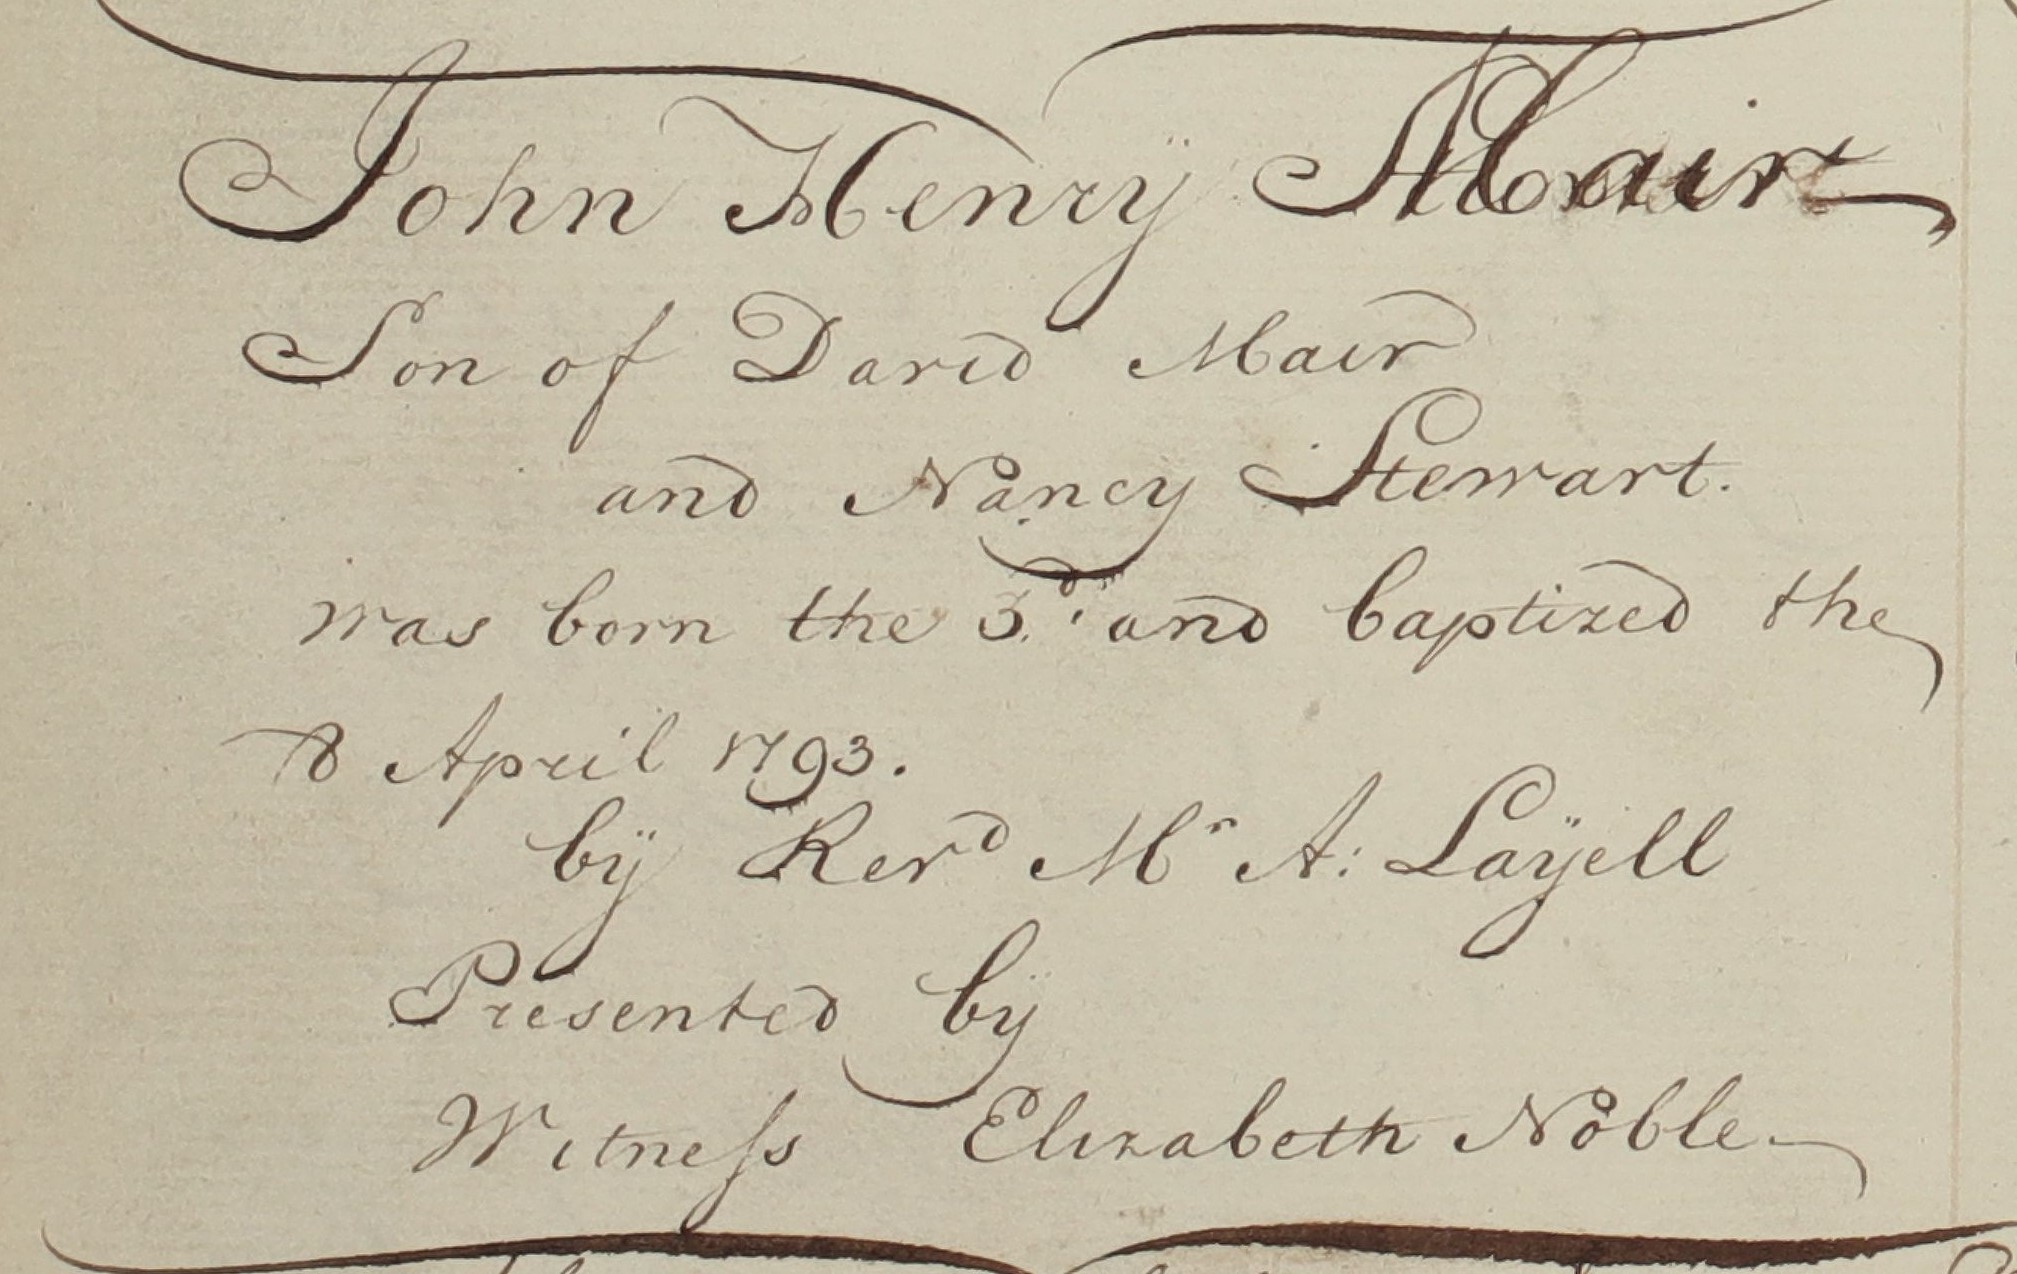 John Henrÿ Mair
Son of David Mair
and Nancy Stewart.
was born the 3.d and baptized the
8 April 1793.
bÿ Revd Mr A: Laÿell
Presented bÿ
Witneſs Elizabeth Noble